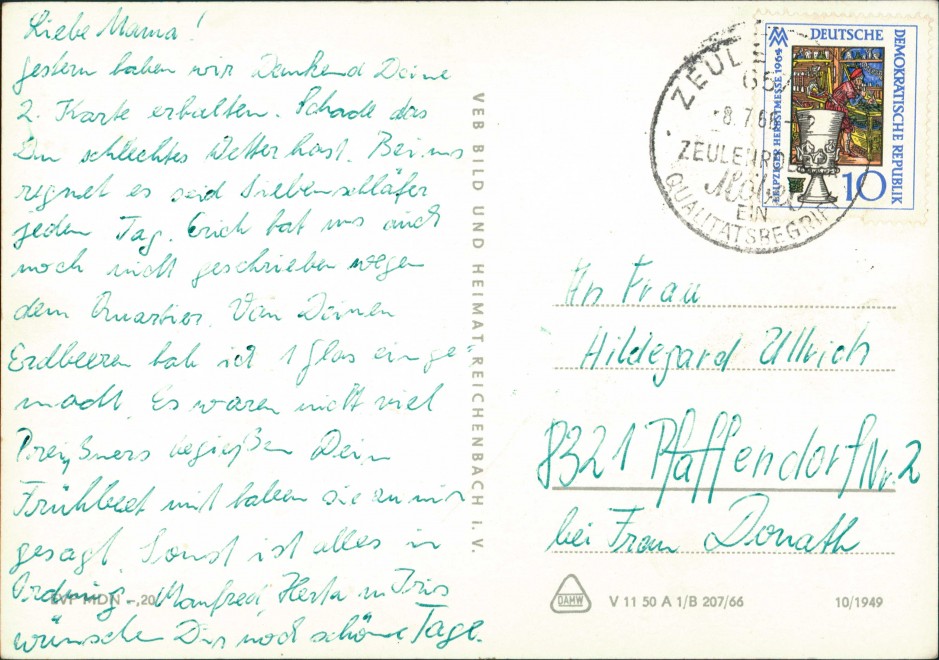 Liebe Mama!
gestern haben wir Dankend Deine
2. Karte erhalten. Schade das
Du schlechtes Wetter hast. Bei uns
regnet es seid Siebenschläfer
jeden Tag. Erich hat uns auch
noch nicht geschrieben wegen
dem Quartier. Von Deinen
Erdbeeren hab ich 1 Glas einge-
macht. Es waren nicht viel
begießen Dein
Frühbeet mit haben sie zu mir
gesagt. Sonst ist alles in
Ordnung. Manfred, Herta u Iris
wünschen Dir noch schöne Tage.
EVP MDN -,20
VEB BILD UND HEIMAT REICHENBACH I. V.
DEUTSCHE
DEMOKRATISCHE REPUBLIK
LEIPZIGER HERBSTMESSE 1964
10
ZEULENRODA
EIN
QUALITÄTSBEGRIFF
An Frau
Hildegard Ullrich
8321 Pfaffendorf Nr. 2
bei Frau Donath
DAMW
V 11 50 A 1/B 207/66
10/1949